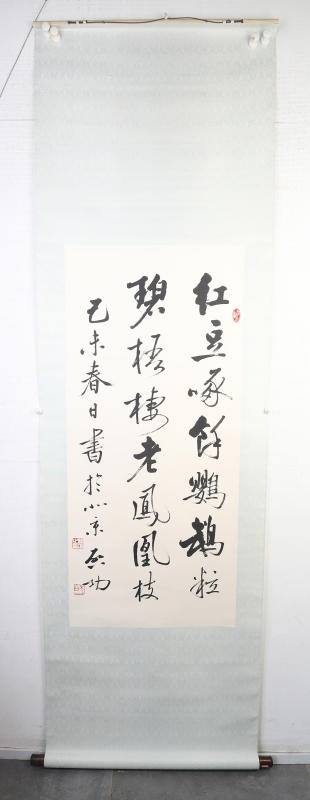 红豆啄餘鸚鵡粒
碧梧棲老鳳凰枝
己未春日書於北京 启功